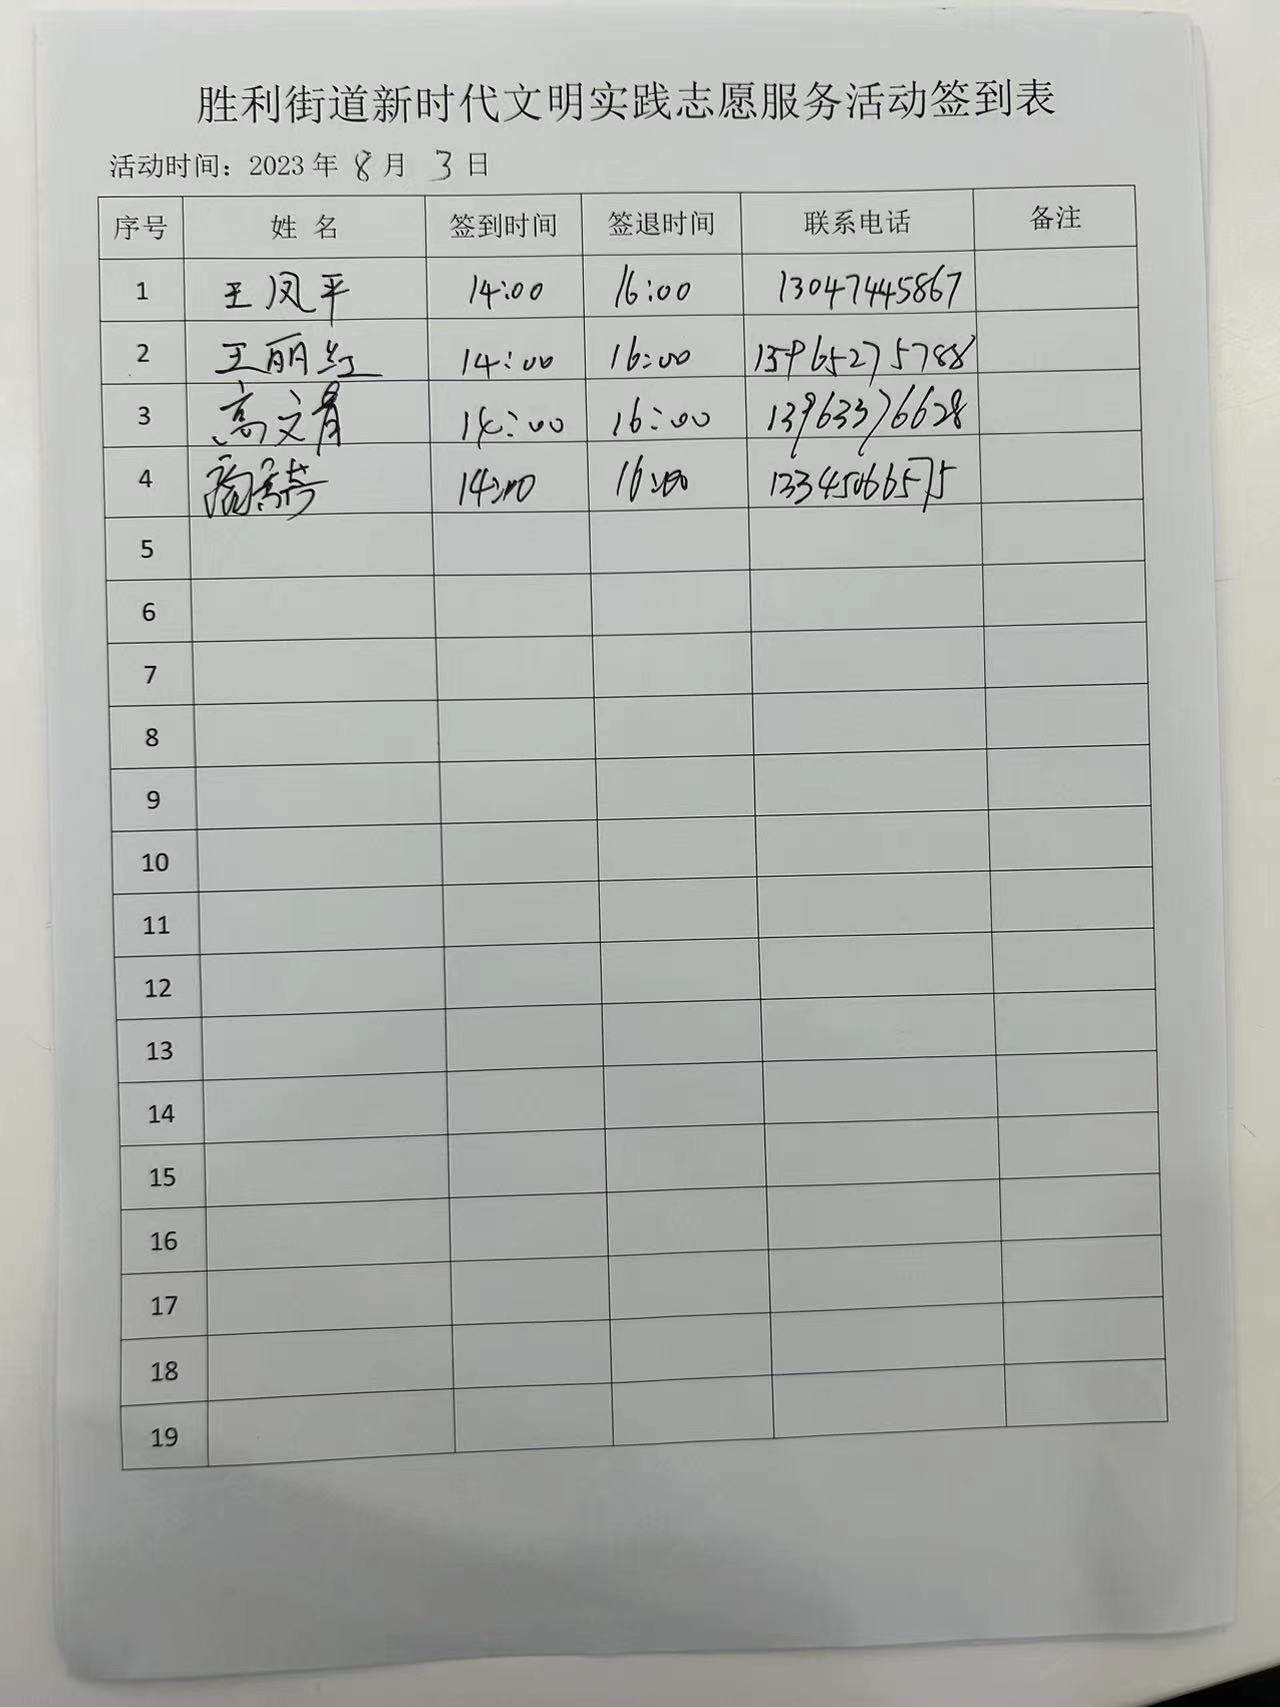 胜利街道新时代文明实践志愿服务活动签到表
活动时间：2023 年 8 月 3 日
序号 姓 名 签到时间 签退时间 联系电话 备注
1 王凤平 14:00 16:00 13047445867
2 王丽红 14:00 16:00 13965275788
3 高文青 14:00 16:00 13963376628
4 14:00 16:00 13345066575
5
6
7
8
9
10
11
12
13
14
15
16
17
18
19